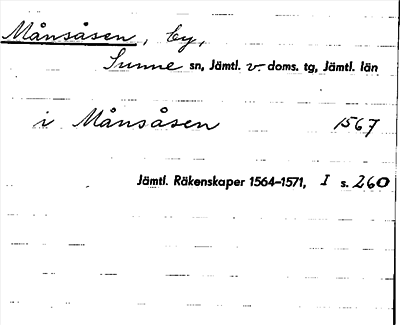 Månsåsen, by,
Sunne sn, Jämtl. v. doms. tg, Jämtl. län
i Månsåsen 1567
Jämtl. Räkenskaper 1564-1571, I s. 260